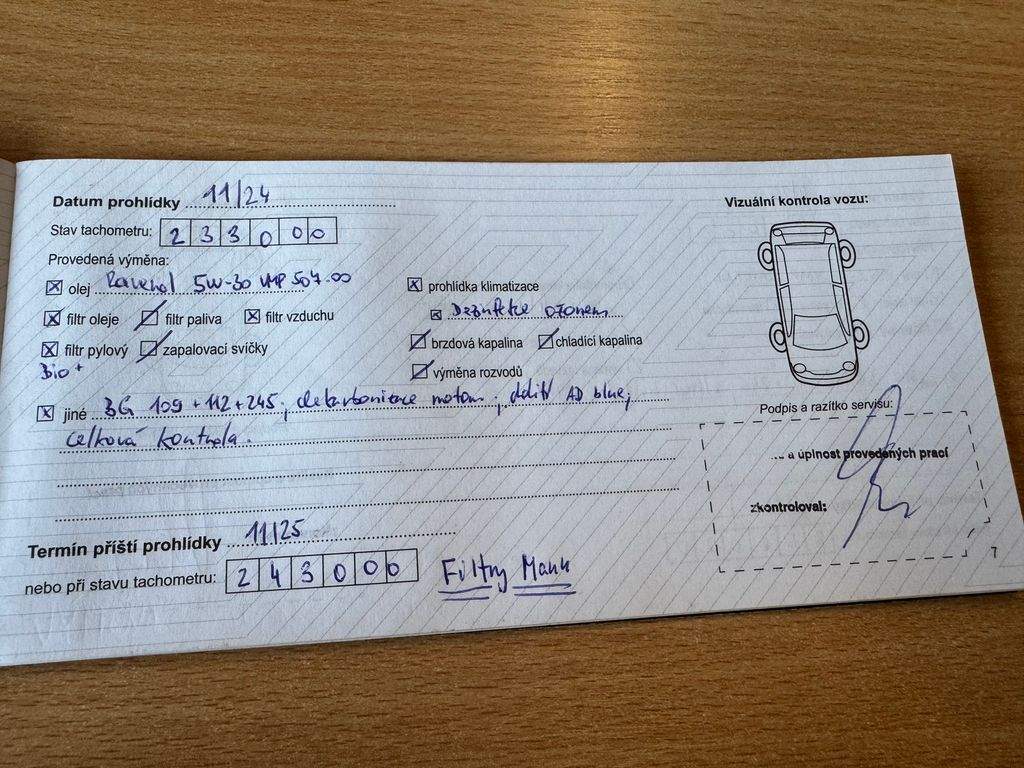 Datum prohlídky 11/24
Stav tachometru: 233000
Provedená výměna:
olej Ravenol 5W-30 VMP 507.00
filtr oleje filtr paliva filtr vzduchu
filtr pylový zapalovací svíčky
Bio+
jiné BG 109 + 112 + 245, dekarbonizace motoru, dolití AD blue,
celková kontrola.
Termín příští prohlídky 11/25
nebo při stavu tachometru: 243000
Filtry Mann
prohlídka klimatizace
Dezinfekce ozonem
brzdová kapalina chladící kapalina
výměna rozvodů
Vizuální kontrola vozu:
Podpis a razítko servisu:
a úplnost provedených prací
zkontroloval:
7